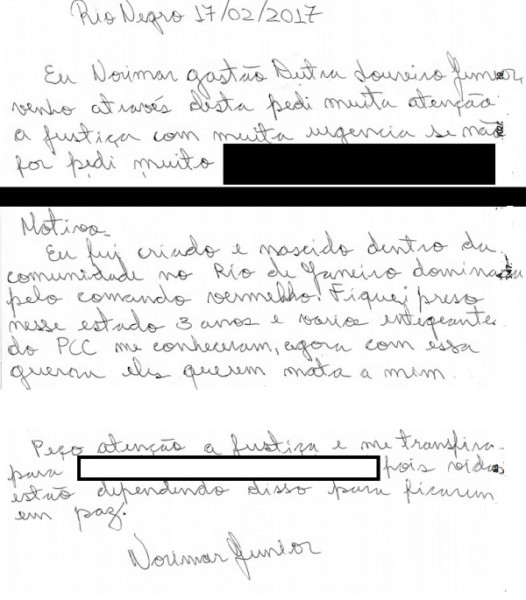 Rio Negro 17/02/2017
Eu Norimar gastão Dutra Loureiro Junior,
venho através desta pedi muita atenção
a justiça com muita urgencia se não
for pedi muito
Motivoo
Eu fui criado e nascido dentro da
comunidade no Rio de Janeiro dominada
pelo comando vermelhho. Fiquei preso
nesse estado 3 anos e varios integrantes
do PCC me conheceram, agora com essa
guerra eles querem mata a mim.
Peço atenção a justiça e me transfira
para pois vidas
estão dipendendo disso para ficarem
em paz.
Norimar Junior